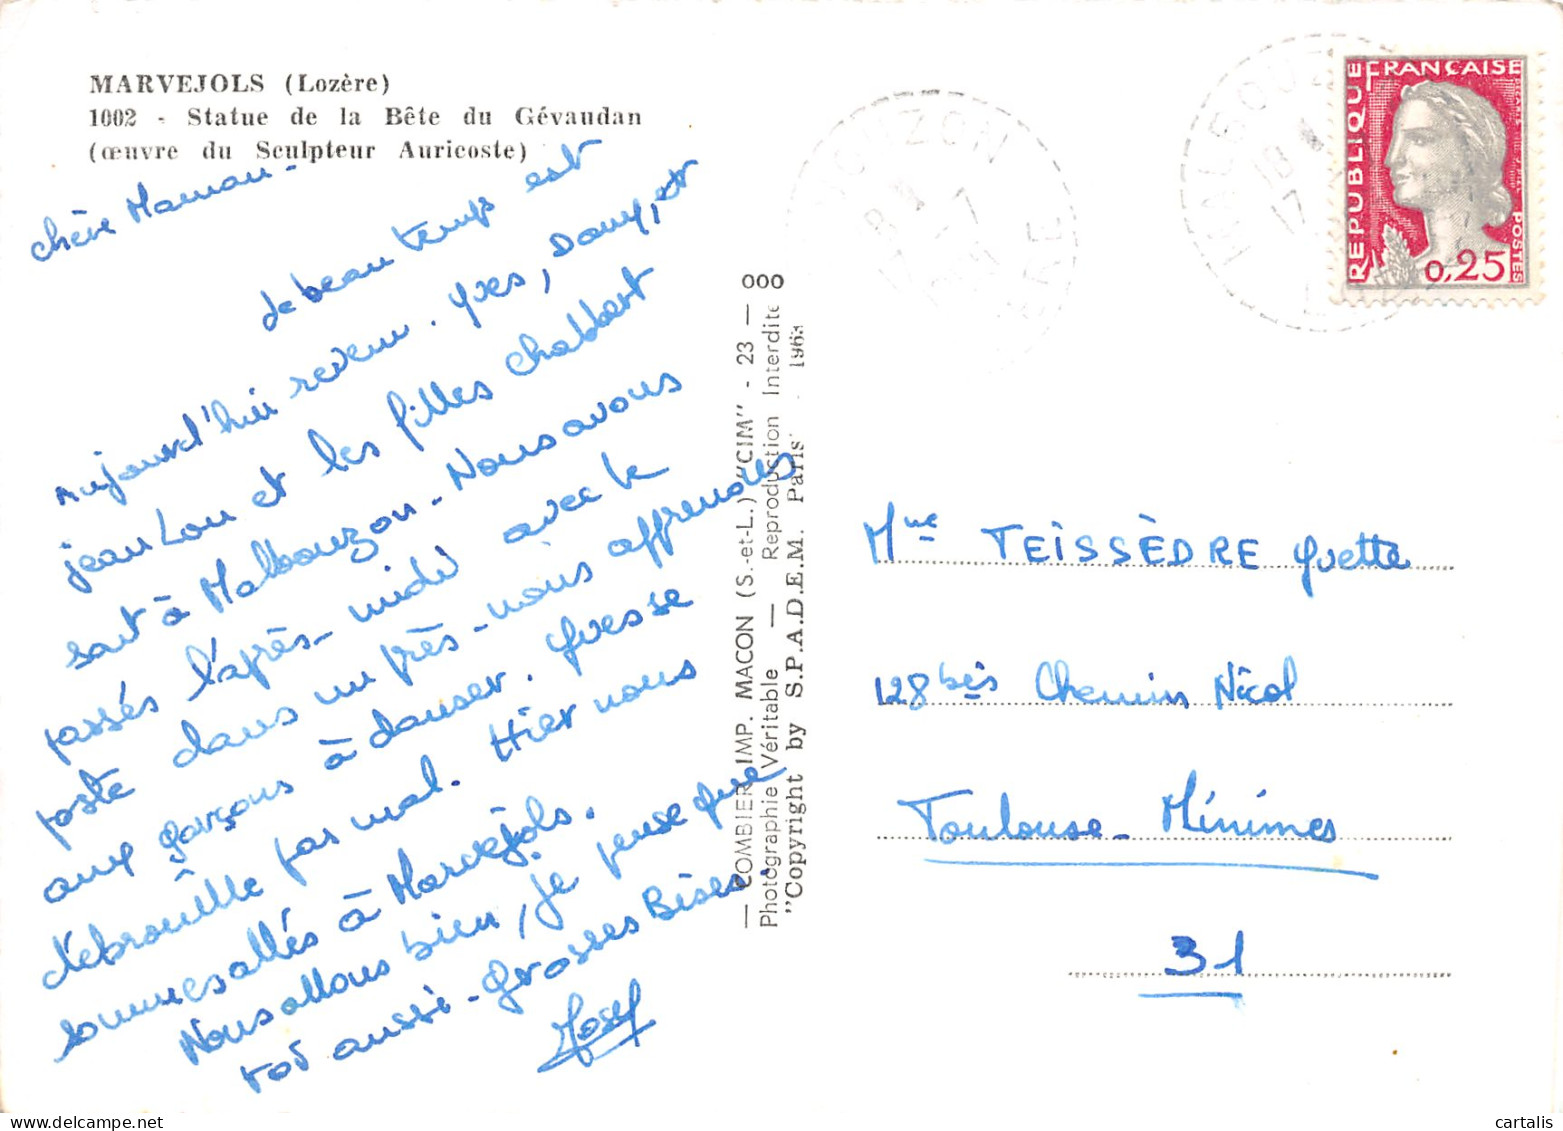 MARVEJOLS (Lozère)
1002 - Statue de la Bête du Gévaudan
(œuvre du Sculpteur Auricoste)
chère Maman -
le beau temps est
Aujourd'hui revenu. Yves, Dany, et
jean Lou et les filles chabbert
sont à Malbouzon - Nous avons
passés l'après-midi avec le
poste dans un près - nous apprenons
aux garçons à danser. Yves se
débrouille pas mal. Hier nous
sommes allés à Marvejols.
Nous allons bien, je pense que
toi aussi - Grosses Bises.
Josef
— COMBIER IMP. MACON (S.-et-L.) "CIM" - 23 — 000
Photographie Véritable — Reproduction Interdite
"Copyright by S.P.A.D.E.M. Paris 1963
MALBOUZON
18
17
REPUBLIQUE FRANCAISE
POSTES
0,25
Mme TEISSÈDRE Yvette
128 bis Chemin Nicol
Toulouse - Minimes
31
cartalis